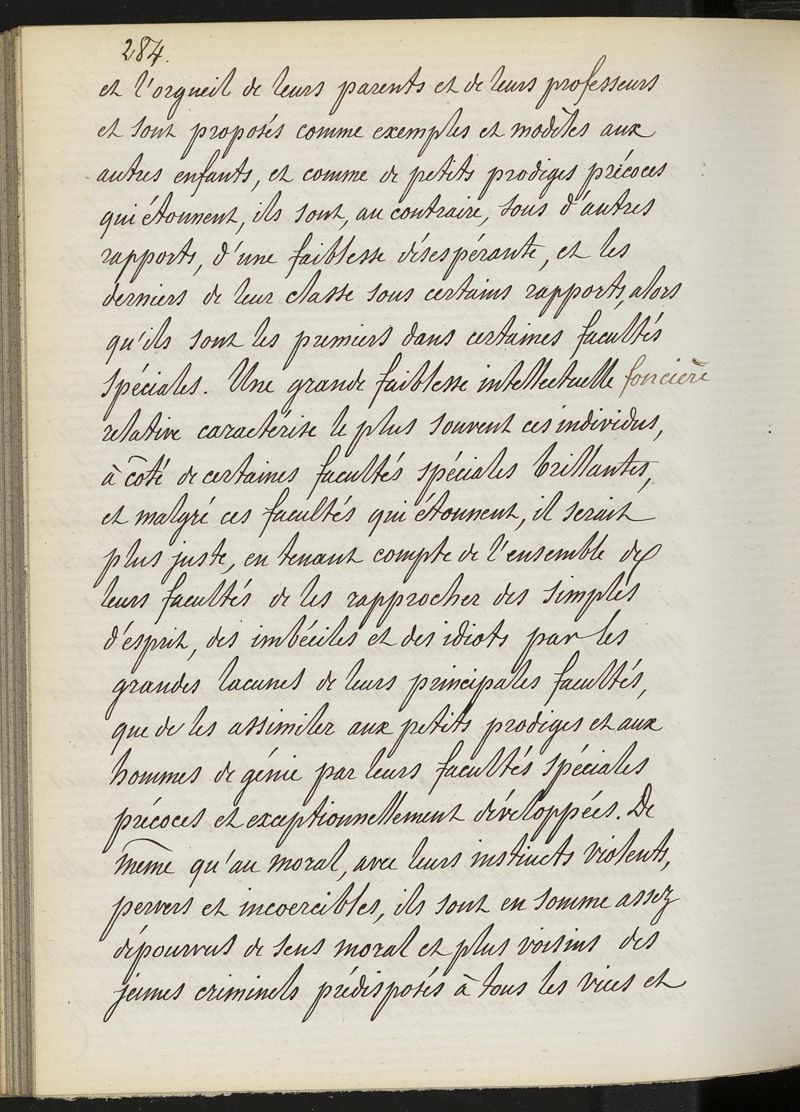 284.
et l'orgueil de leurs parents et de leurs professeurs
et sont proposés comme exemples et modèles aux
autres enfants, et comme de petits prodiges précoces
qui étonnent, ils sont, au contraire, sous d'autres
rapports, d'une faiblesse désespérante, et les
derniers de leur classe sous certains rapports, alors
qu'ils sont les premiers dans certaines facultés
spéciales. Une grande faiblesse intellectuelle foncière
relative caractérise le plus souvent ces individus,
à côté de certaines facultés spéciales brillantes,
et malgré ces facultés qui étonnent, il serait
plus juste, en tenant compte de l'ensemble de
leurs facultés de les rapprocher des simples
d'esprit, des imbéciles et des idiots par les
grandes lacunes de leurs principales facultés,
que de les assimiler aux petits prodiges et aux
hommes de génie par leurs facultés spéciales
précoces et exceptionnellement développées. De
même qu'au moral, avec leurs instincts violents,
pervers et incoercibles, ils sont en somme assez
dépourvus de sens moral et plus voisins des
jeunes criminels prédisposés à tous les vices et